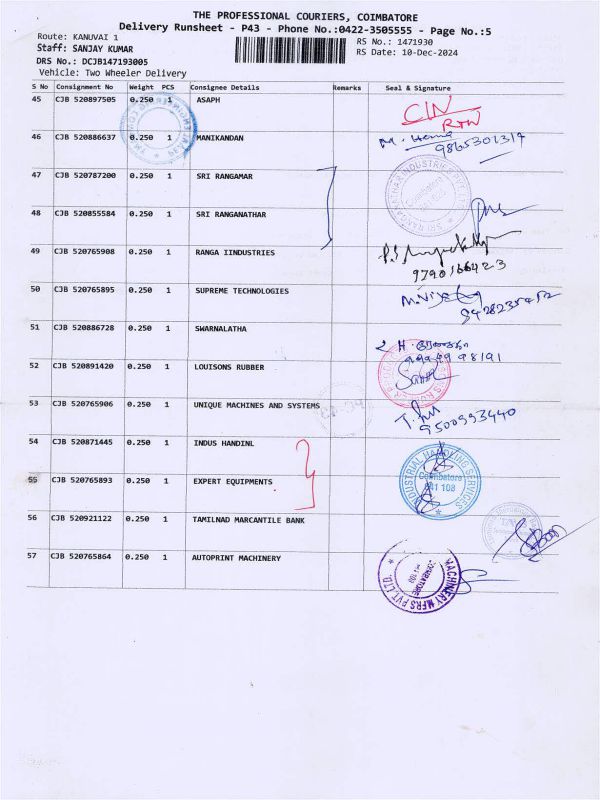 THE PROFESSIONAL COURIERS, COIMBATORE
Delivery Runsheet - P43 - Phone No.:0422-3505555 - Page No.:5
Route: KANUVAI 1
RS No.: 1471930
Staff: SANJAY KUMAR
RS Date: 10-Dec-2024
DRS No.: DCJB147193005
Vehicle: Two Wheeler Delivery
S No Consignment No Weight PCS Consignee Details Remarks Seal & Signature
45 CJB 520897505 0.250 1 ASAPH CIN
RTW
46 CJB 520886637 0.250 1 MANIKANDAN M. Hema
9865301317
47 CJB 520787200 0.250 1 SRI RANGAMAR
48 CJB 520855584 0.250 1 SRI RANGANATHAR
49 CJB 520765908 0.250 1 RANGA IINDUSTRIES
9790166423
50 CJB 520765895 0.250 1 SUPREME TECHNOLOGIES
51 CJB 520886728 0.250 1 SWARNALATHA
52 CJB 520891420 0.250 1 LOUISONS RUBBER
53 CJB 520765906 0.250 1 UNIQUE MACHINES AND SYSTEMS
9500993440
54 CJB 520871445 0.250 1 INDUS HANDINL
INDUSTRIAL HANDLING SERVICES
Coimbatore
641 108
55 CJB 520765893 0.250 1 EXPERT EQUIPMENTS
56 CJB 520921122 0.250 1 TAMILNAD MARCANTILE BANK
57 CJB 520765864 0.250 1 AUTOPRINT MACHINERY
MACHINERY MFRS PVT. LTD.
COIMBATORE